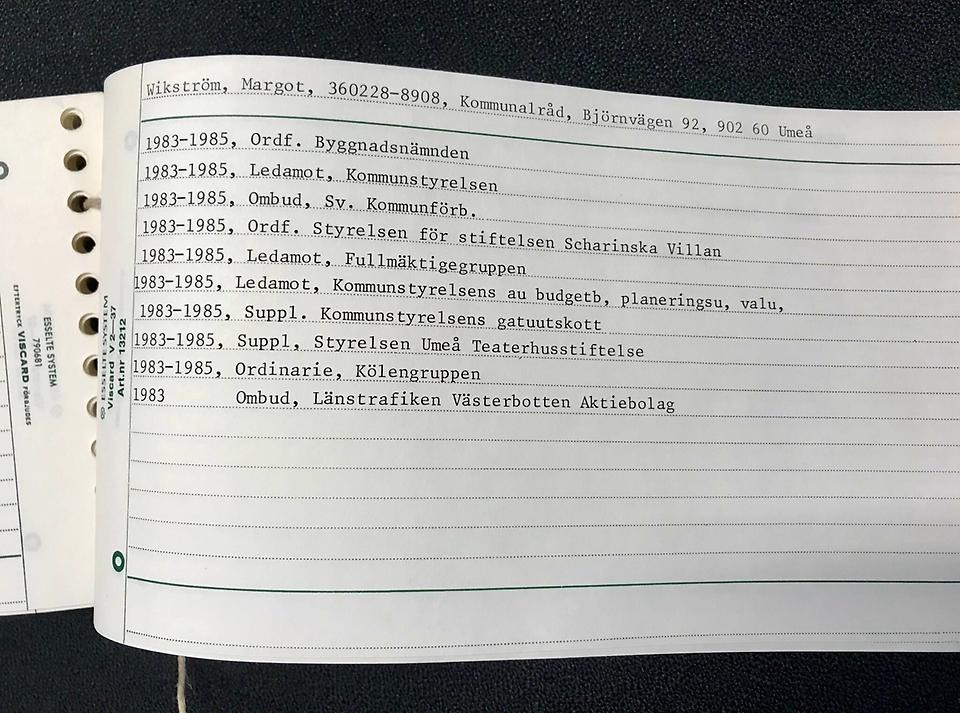 Wikström, Margot, 360228-8908, Kommunalråd, Björnvägen 92, 902 60 Umeå
1983-1985, Ordf. Byggnadsnämnden
1983-1985, Ledamot, Kommunstyrelsen
1983-1985, Ombud, Sv. Kommunförb.
1983-1985, Ordf. Styrelsen för stiftelsen Scharinska Villan
1983-1985, Ledamot, Fullmäktigegruppen
1983-1985, Ledamot, Kommunstyrelsens au budgetb, planeringsu, valu,
1983-1985, Suppl. Kommunstyrelsens gatuutskott
1983-1985, Suppl, Styrelsen Umeå Teaterhusstiftelse
1983-1985, Ordinarie, Kölengruppen
1983 Ombud, Länstrafiken Västerbotten Aktiebolag
ESSELTE SYSTEM
Viscard V 2-37
Art.nr 13212
ESSELTE SYSTEM
790681
EFTERTRYCK VISCARD FÖRBJUDES